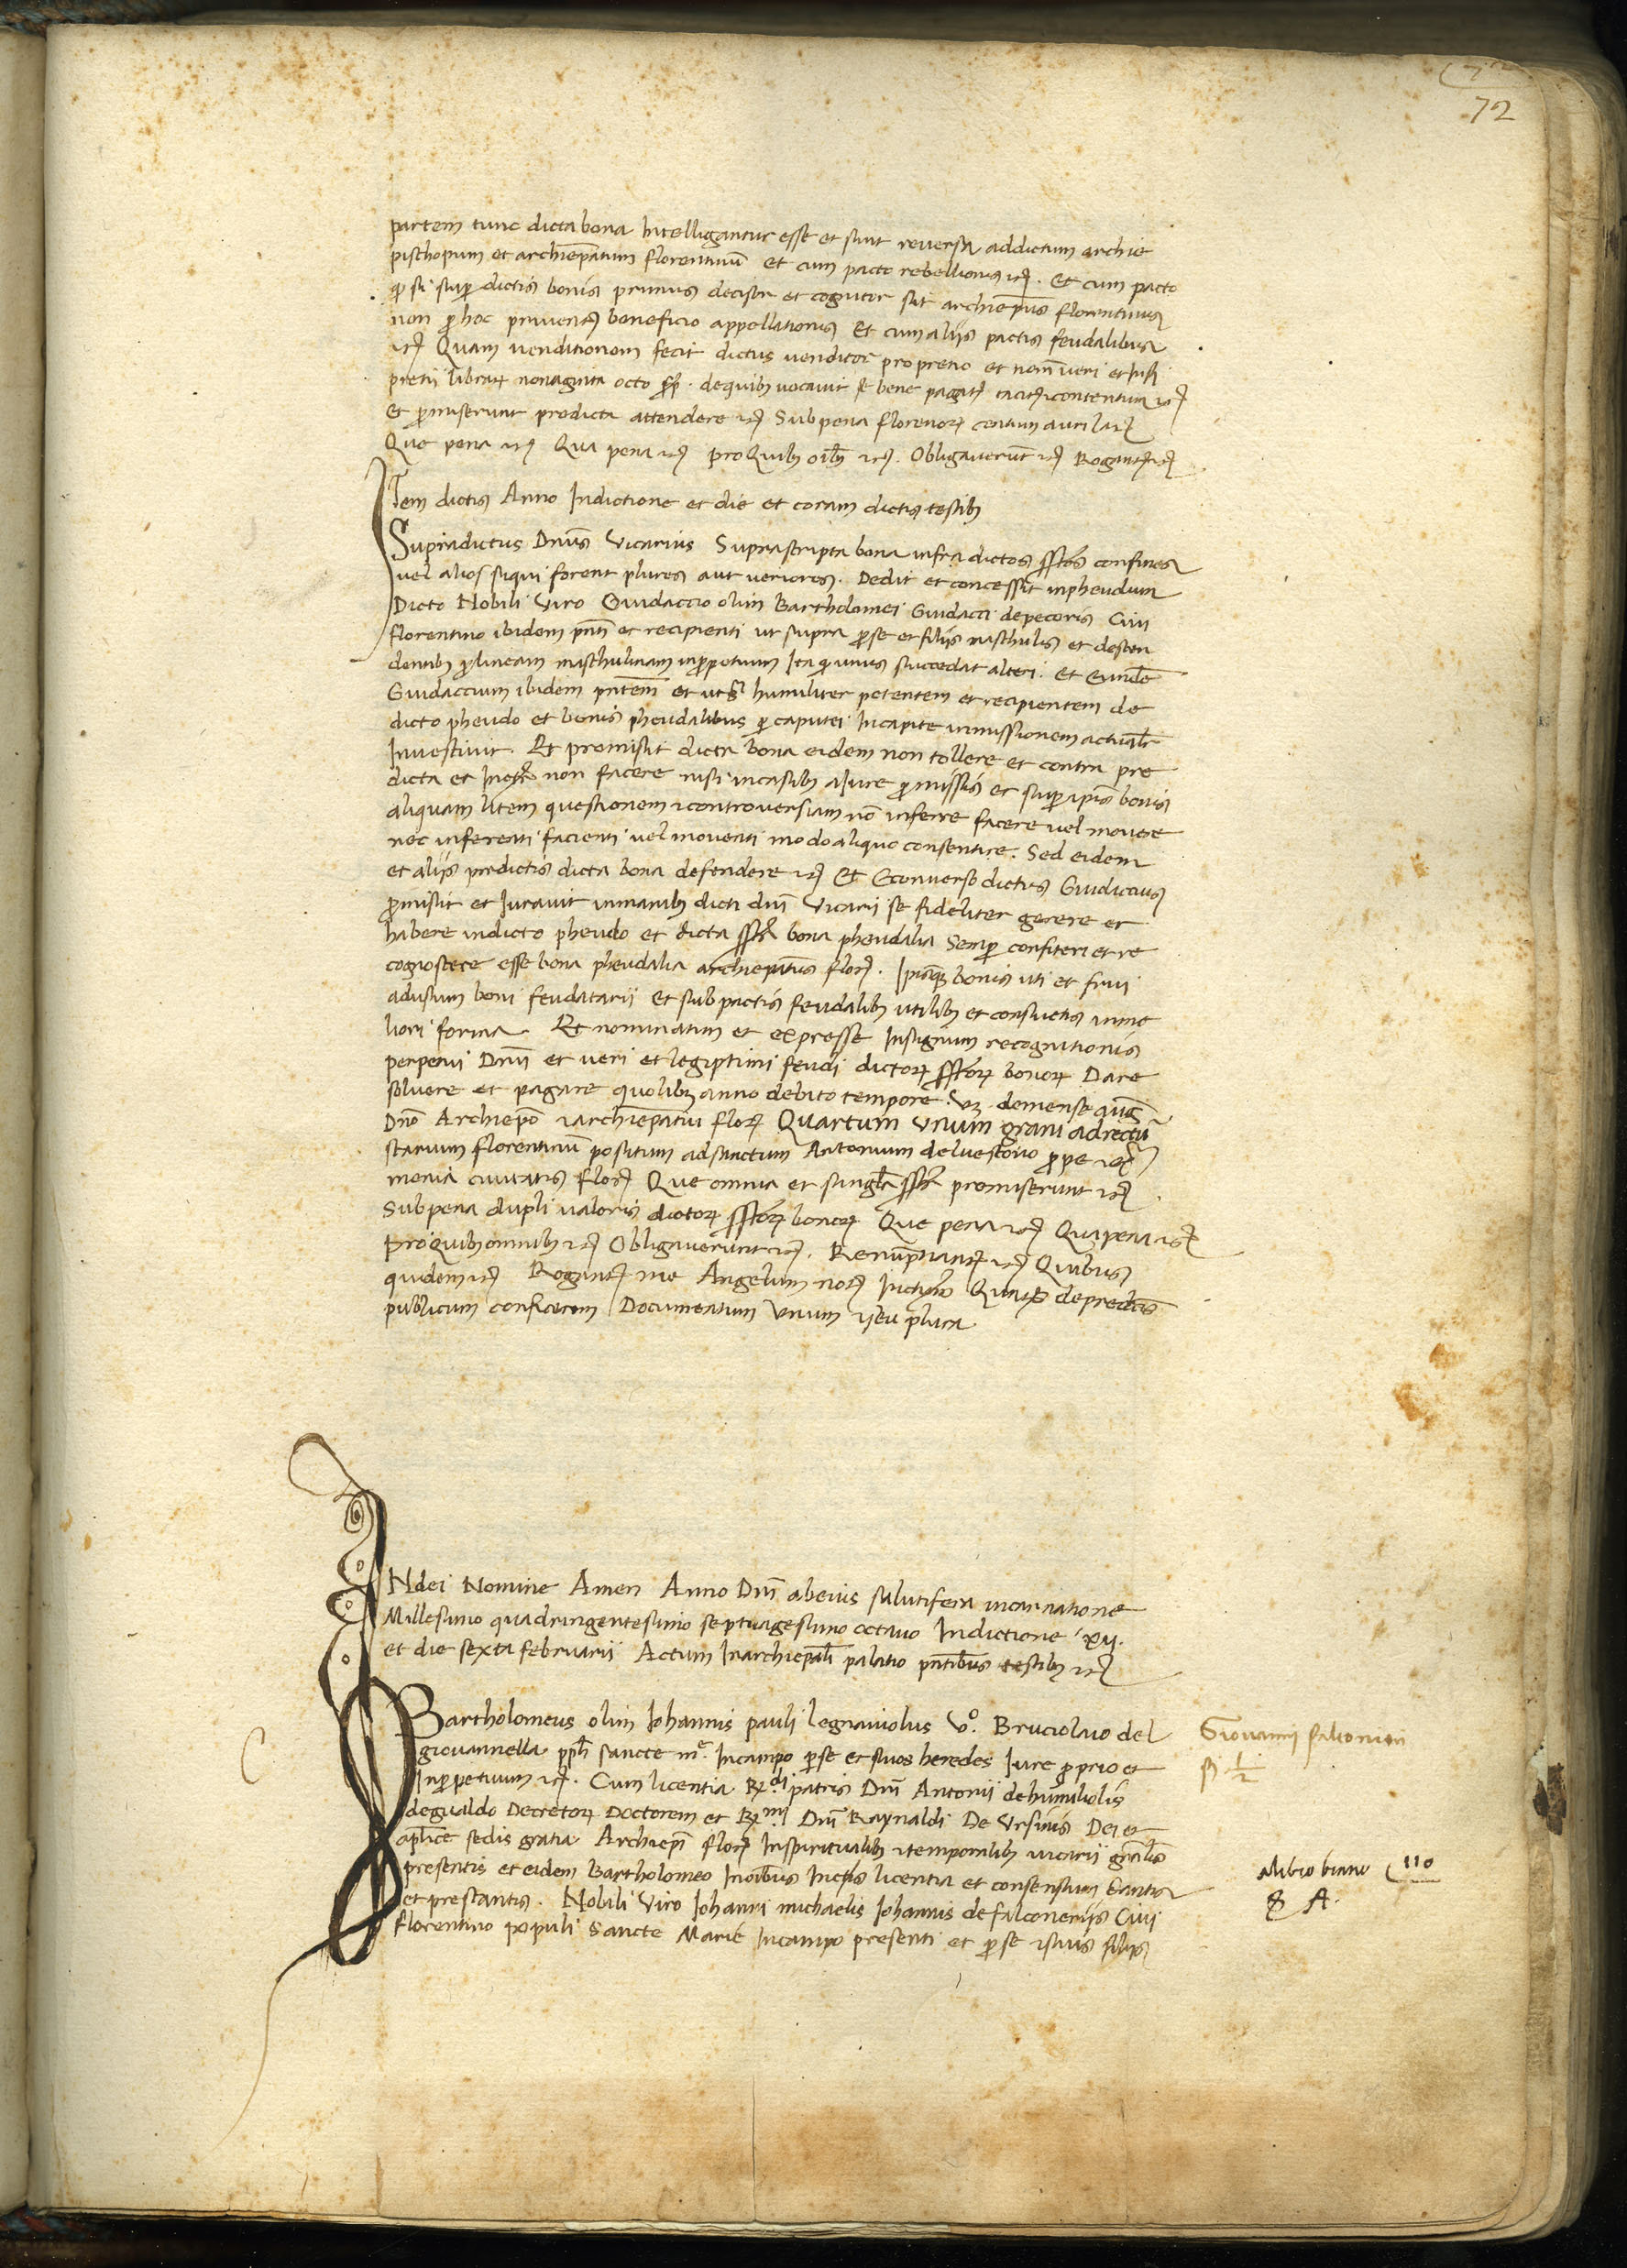 72
partem tunc dicta bona Intelligantur esse et sint reversa addictum archie
pischopum et archiepatum florentinum et cum pacto rebellionis etc. Et cum pacto
q si sup dictis bonis primus decisor et cognitor sit archiepus florentinus
non p hoc privent beneficio appellationis Et cum aliis pactis feudalibus
etc Quam venditionem fecit dictus venditor pro pretio et nomine veri et Iusti
pretii librar nonaginta octo fp. dequib vocavit se bene pagat tacit et contentum etc
et pmiserunt predicta attendere etc Subpena florenor centum auri lar
Que pena etc Qua pena etc pro Quib oib etc. Obligaverunt etc Rogantes etc
Item dictis Anno Indictione et die et coram dictis testib
Supradictus Dnus Vicarius Suprascripta bona infra dictos sstos confines
vel alios siqui forent plures aut veriores. Dedit et concessit inpheudum
Dicto Nobili Viro Guidaccio olim Bartholomei Guidacci depecoris Civi
florentino ibidem pnti et recipienti ut supra pse et filiis maschulis et descen
dentib p lineam maschulinam inppetuum Ita q unus succedat alteri. Et Eunde
Guidaccium ibidem pntem et uts humiliter petentem et recipientem de
dicto pheudo et bonis pheudalibus p caputei Incapite inmissionem actualr
Investivit. Et promisit dicta bona eidem non tollere et contra pre
dicta et non facere nisi incasib aIure pmissis et sup ipis bonis
aliquam litem questionem et controversiam no inferre facere vel movere
nec inferenti facienti vel moventi modo aliquo consentire. Sed eidem
et aliis predictis dicta bona defendere etc Et Econverso dictus Guidaccius
pmisit et Iuravit inmanib dicti dni Vicarii se fideliter gerere et
habere indicto pheudo et dicta ssta bona pheudalia Semp confiteri et re
cognoscere esse bona pheudalia archiepatus flor. Ipisq bonis uti et frui
adusum boni feudatarii et subpactis feudalib utilib et consuetis inme
liori forma Et nominatim et expresse Insignum recognitionis
perpetui Dnii et veri et legiptimi feudi dictor sstor bonor Dare
solvere et pagare quolib anno debito tempore. vz. demense aug
Dno Archiepo et archiepatui flor Quartum Unum grani adrectu
starium florentinu positum adsanctum Antonium delvescovo ppe
menia civitatis flor Que omnia et singla ssta promiserunt etc
Subpena dupli valoris dictor sstor bonor Que pena etc Qua pena etc
pro Quib omnib etc Obligaverunt etc. Renumptiantes etc Quibus
quidem etc Rogantes me Angelum not Quat depredcis
publicum conficerem Documentum Unum seu plura.
INdei Nomine Amen Anno Dni abeius salutifera incarnatione
Millesimo quadringentesimo septuagesimo octavo Indictione xii.
et die sexta februarii Actum Inarchiepali palatio pntibus testib etc
Bartholomeus olim Iohannis pauli legnaiuolus Vo. Bruciolavo del
giovannella ppli sancte me. Incampo pse et suos heredes Iure pprio et
Inppetuum etc. Cum licentia R.di patris Dni Antonii dehumiliolis
degualdo Decretor Doctorem et R.mi Dni Raynaldi De Ursinis Dei et
aplice sedis gratia Archiepi flor Inspiritualib et temporalib vicarii gnalis
presentis et eidem Bartholomeo Inoibus Infctis licentia et consensum Dantis
et prestantis. Nobili Viro Iohanni michaelis Iohannis defalconeriis Civi
florentino populi Sancte Marie Incampo presenti et pse et suis filiis
Giovanni falconieri
st 1/2
alibro biancho c 110
& A.